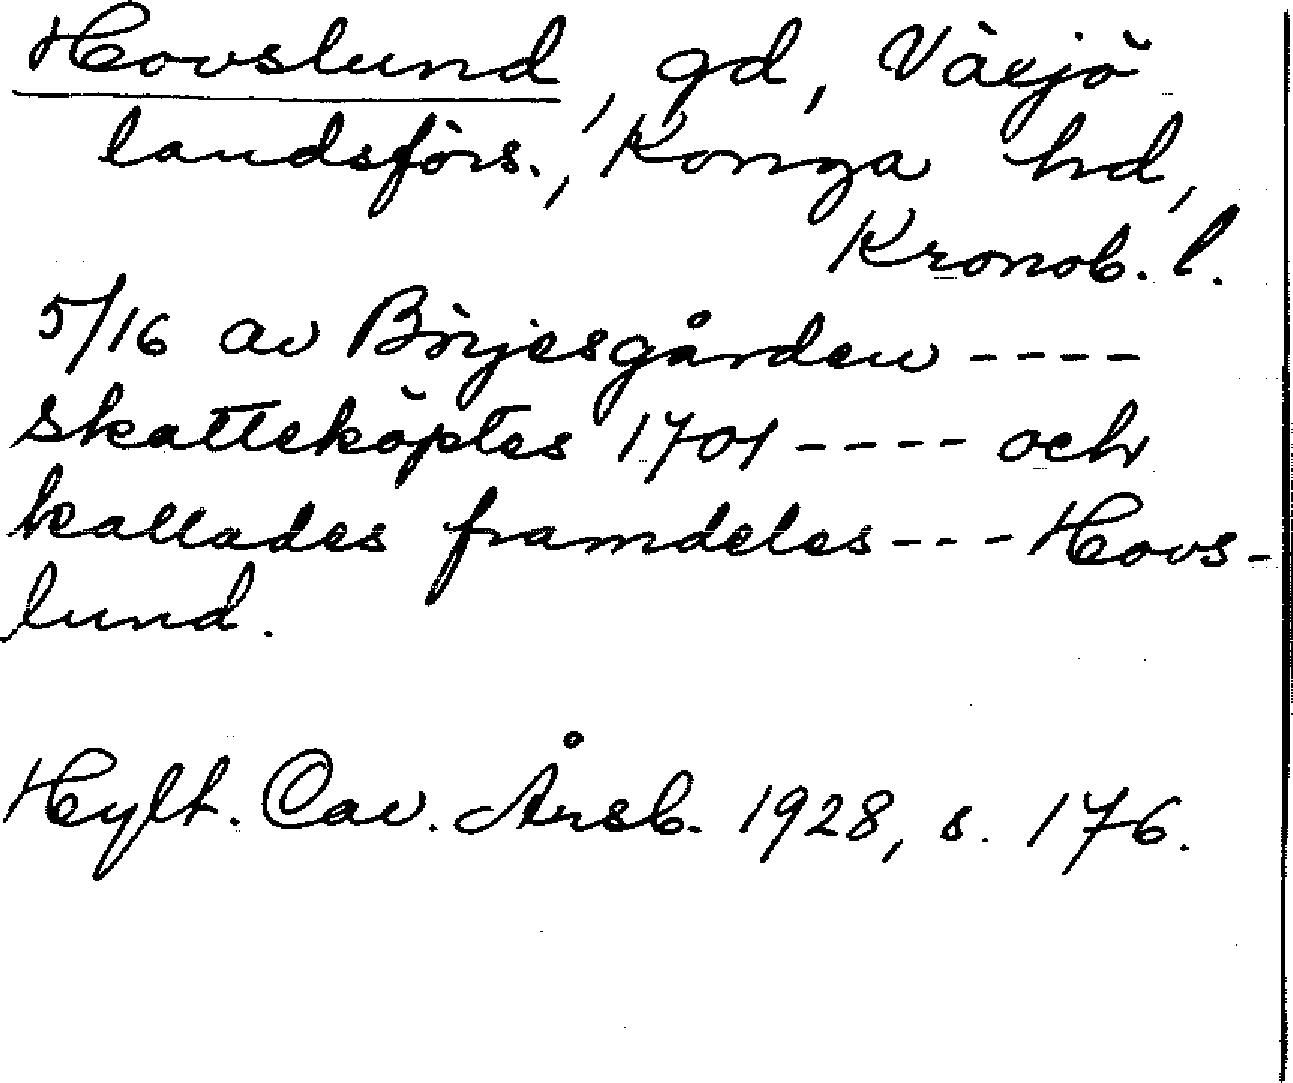 Hovslund, gd, Växjö
landsförs., Konga hd,
Kronob. l.
5/16 av Börjesgården ----
skatteköptes 1701 ---- och
kallades framdeles --- Hovs-
lund.
Hylt. Cav. Årsb. 1928, s. 176.